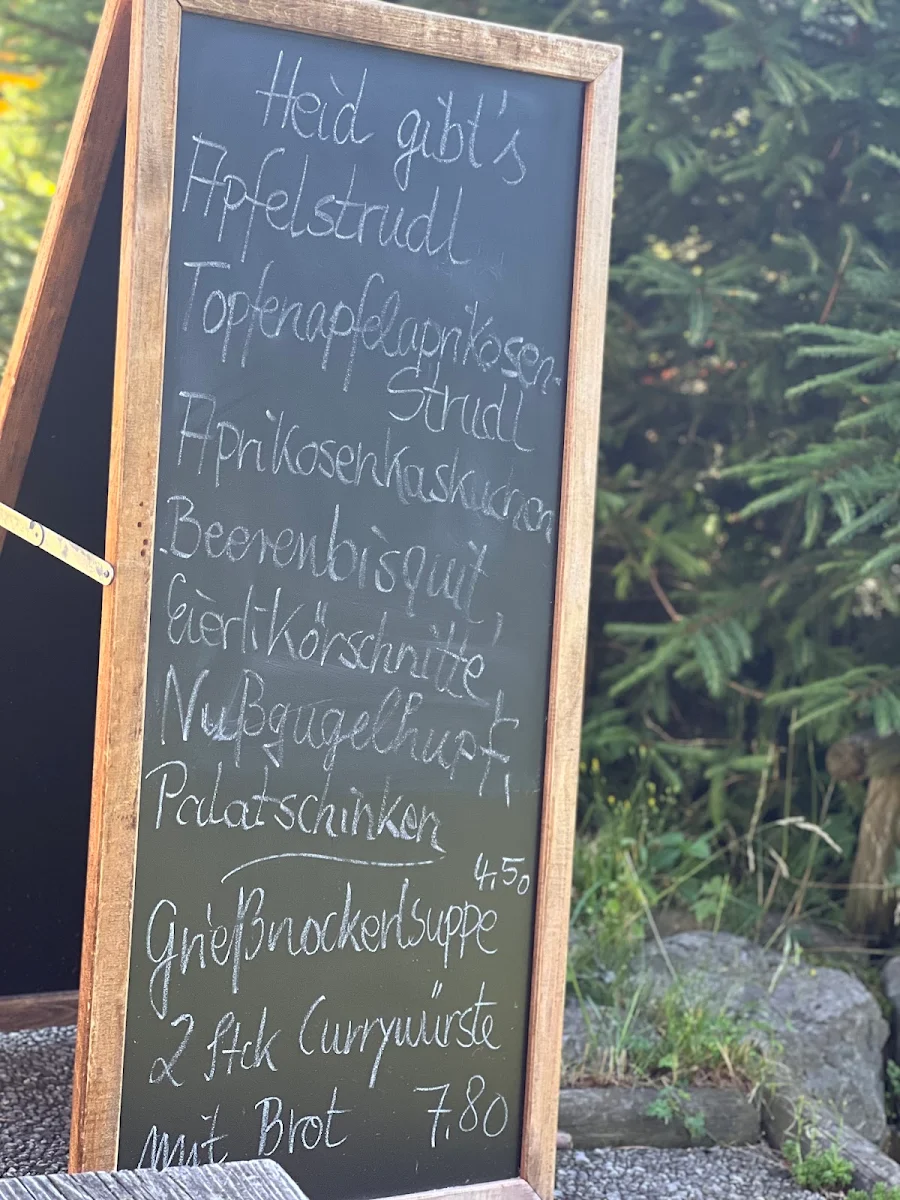 Heid gibt's
Apfelstrudl
Topfenapfelaprikosen-
Strudl
Aprikosenkaskuchen
Beerenbisquit,
Eierlikörschnitte,
Nußgugelhupf,
Palatschinken
4,50
Grießnockerlsuppe
2 Stck Currywürste
mit Brot 7,80